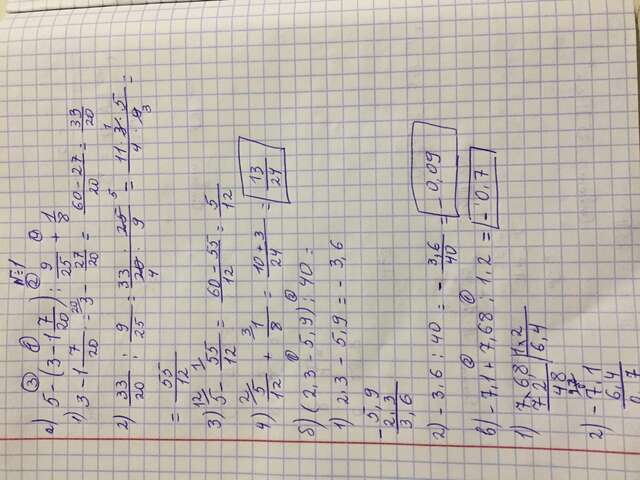 №1
а) 5 - (3 - 1 7/20) : 9/25 + 1/8
1) 3 - 1 7/20 = 3 - 27/20 = (60 - 27)/20 = 33/20
2) 33/20 : 9/25 = 33/20 · 25/9 = (11 · 3 · 5)/(4 · 9) =
= 55/12
3) 5 - 55/12 = (60 - 55)/12 = 5/12
4) 5/12 + 1/8 = (10 + 3)/24 = 13/24
б) (2,3 - 5,9) : 40 =
1) 2,3 - 5,9 = - 3,6
- 5,9
2,3
3,6
2) - 3,6 : 40 = - 3,6/40 = - 0,09
в) - 7,1 + 7,68 : 1,2 = - 0,7
1) 7,68 1,2
7,2 6,4
48
2) - 7,1
6,4
0,7